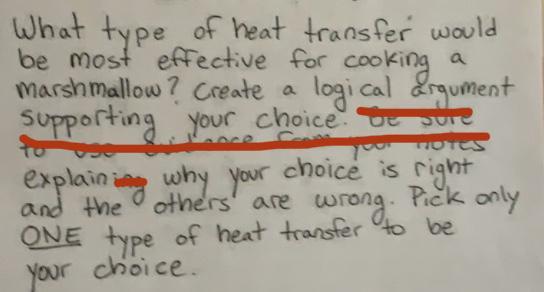 What type of heat transfer would
be most effective for cooking a
marshmallow? Create a logical argument
supporting your choice. Be sure
to use guidance from your notes
explaining why your choice is right
and the others are wrong. Pick only
ONE type of heat transfer to be
your choice.